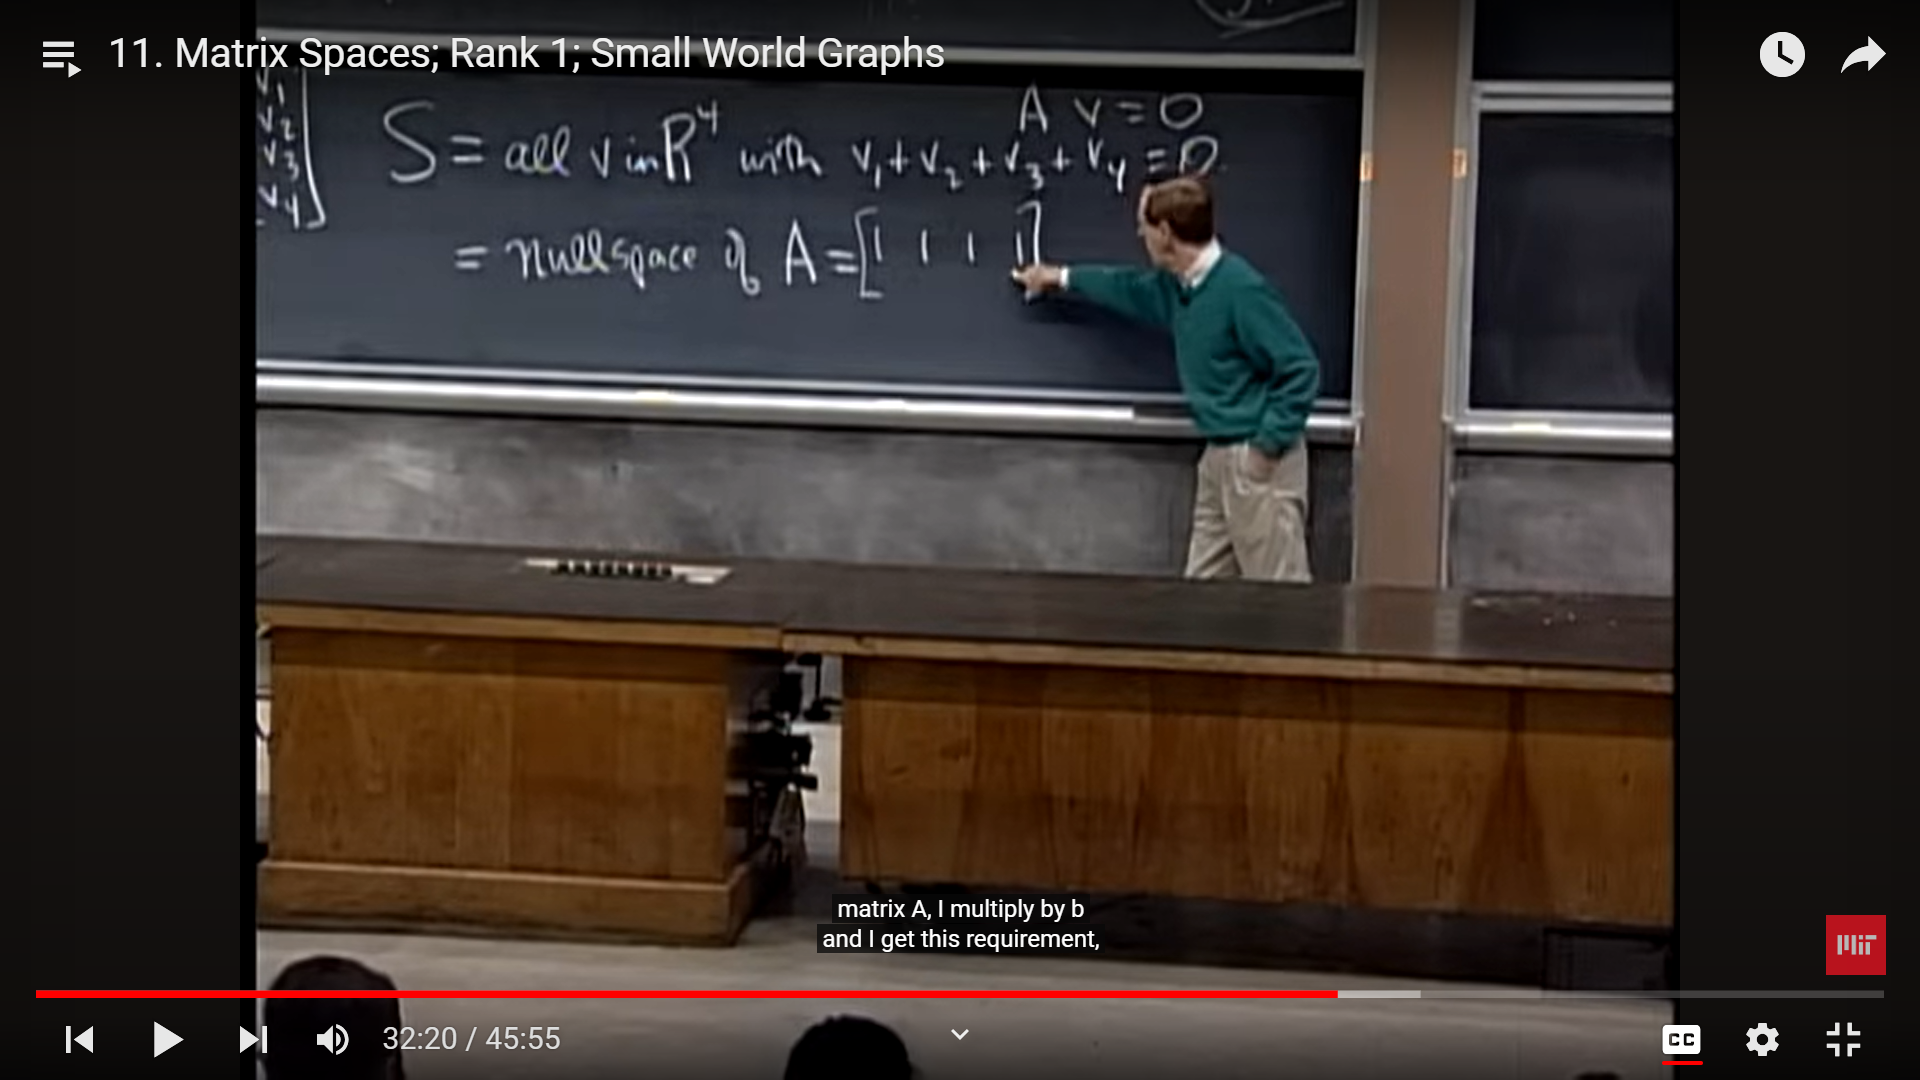 11. Matrix Spaces; Rank 1; Small World Graphs
v1
v2
v3
v4
A v = 0
S = all v in R⁴ with v₁ + v₂ + v₃ + v₄ = 0
= nullspace of A = [1 1 1 1]
matrix A, I multiply by b
and I get this requirement,
MIT
32:20 / 45:55
CC